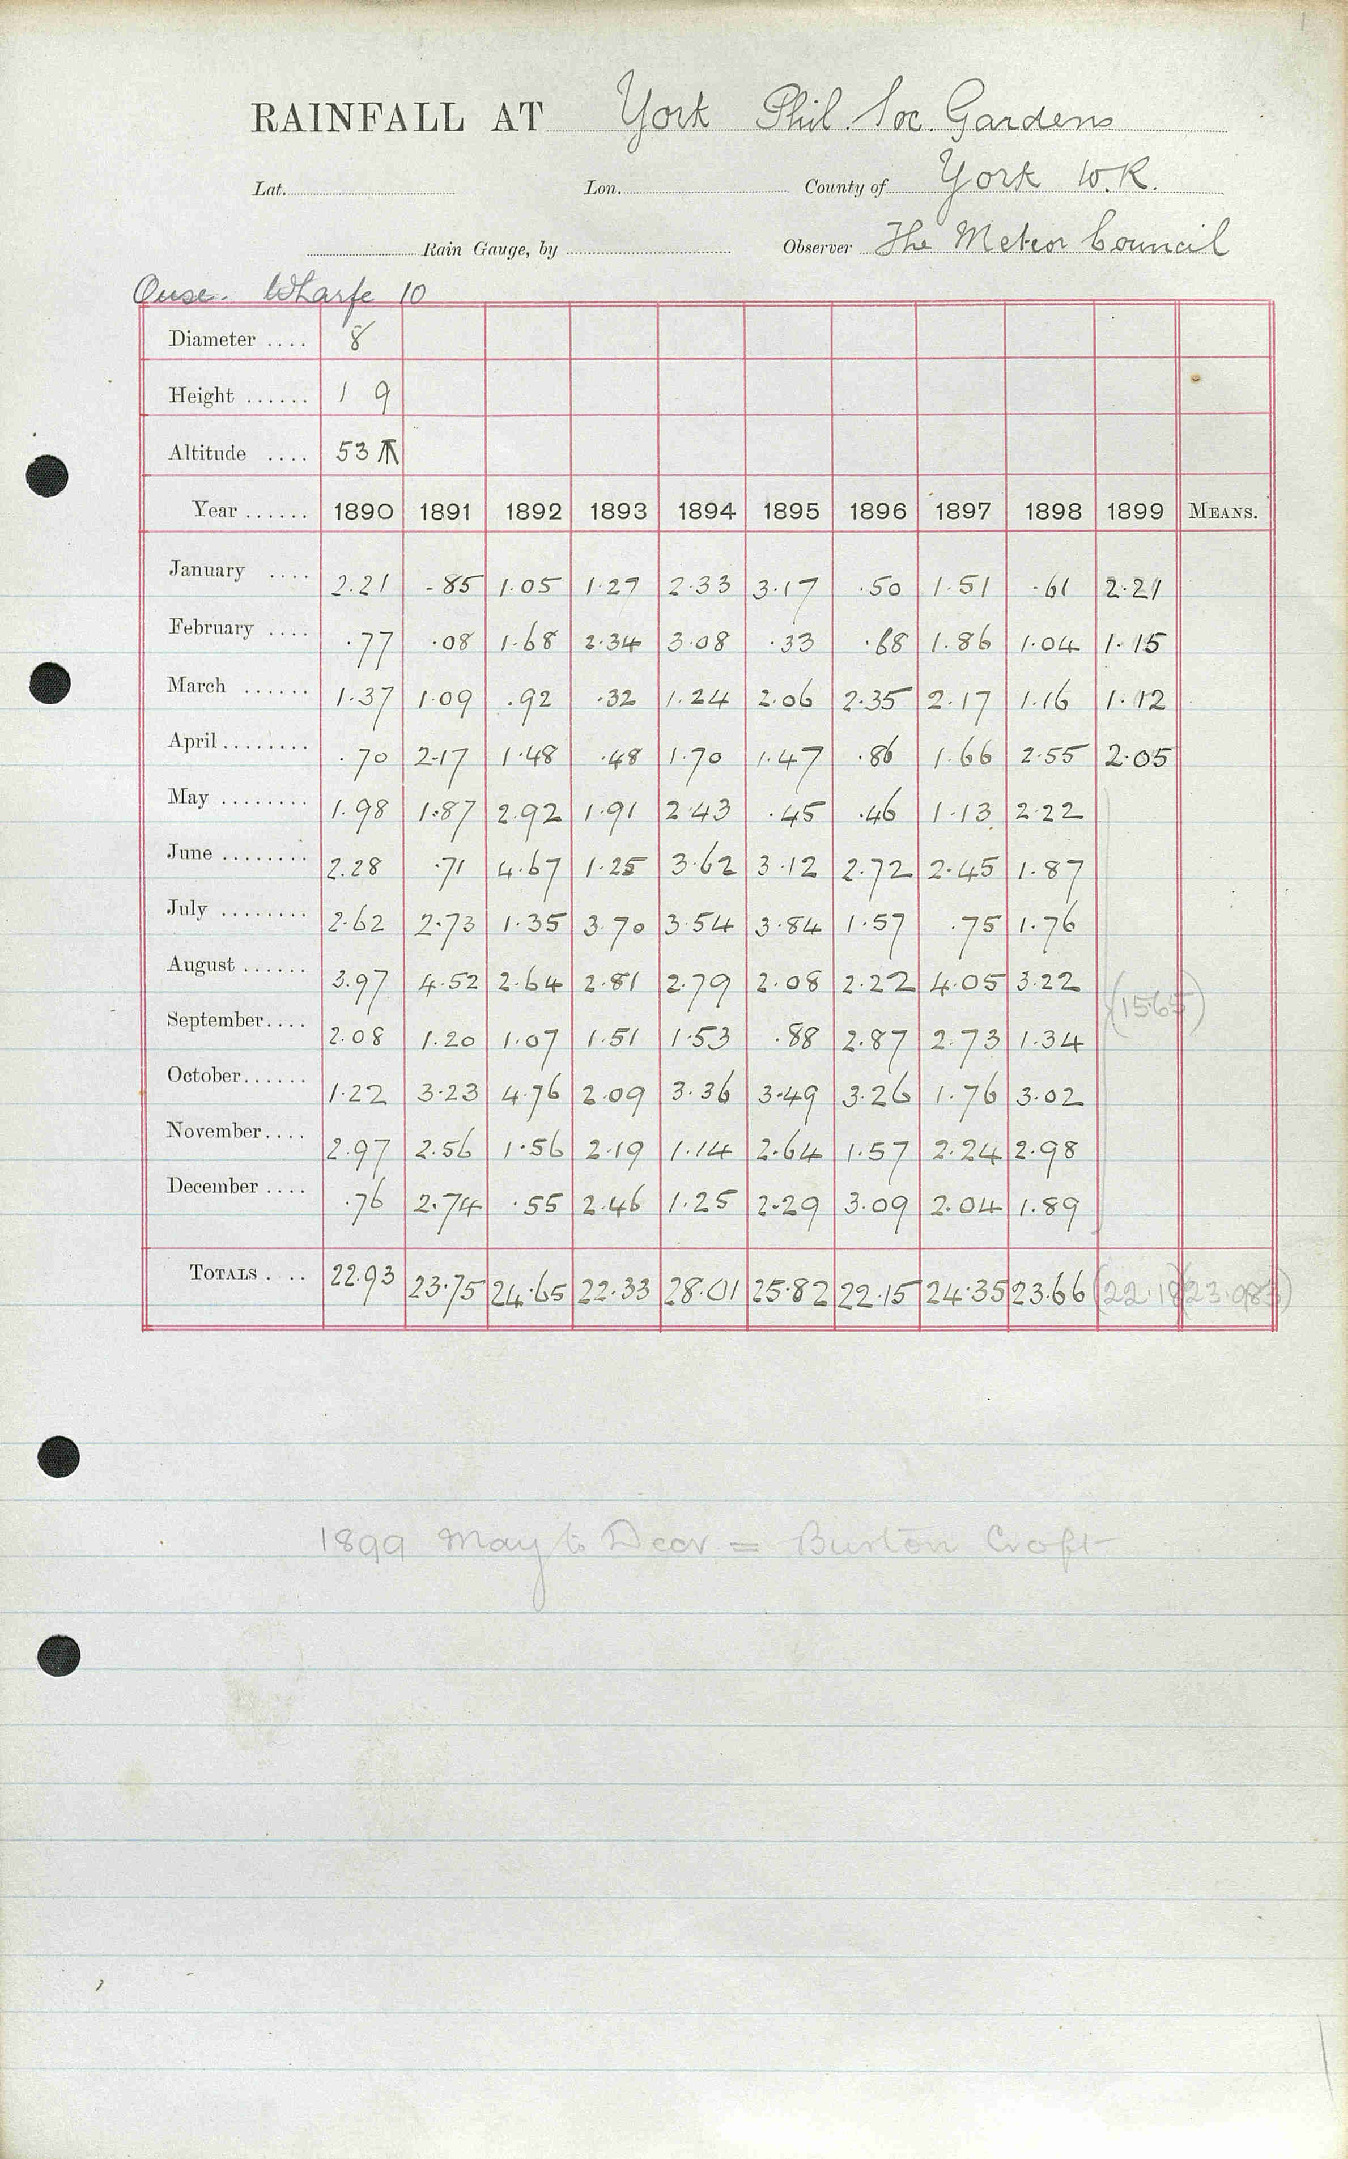 RAINFALL AT York Phil. Soc. Gardens
Lat. Lon. County of York W.R.
Rain Gauge, by Observer The Meteor Council
Ouse. Wharfe 10
Diameter .... 8
Height ...... 1 9
Altitude .... 53
Year ...... 1890 1891 1892 1893 1894 1895 1896 1897 1898 1899 MEANS.
January .... 2.21 .85 1.05 1.27 2.33 3.17 .50 1.51 .61 2.21
February .... .77 .08 1.68 2.34 3.08 .33 .68 1.86 1.04 1.15
March ...... 1.37 1.09 .92 .32 1.24 2.06 2.35 2.17 1.16 1.12
April ........ .70 2.17 1.48 .48 1.70 1.47 .86 1.66 2.55 2.05
May ........ 1.98 1.87 2.92 1.91 2.43 .45 .46 1.13 2.22
June ........ 2.28 .71 4.67 1.25 3.62 3.12 2.72 2.45 1.87
July ........ 2.62 2.73 1.35 3.70 3.54 3.84 1.57 .75 1.76
August ...... 3.97 4.52 2.64 2.81 2.79 2.08 2.22 4.05 3.22
(15.65)
September .... 2.08 1.20 1.07 1.51 1.53 .88 2.87 2.73 1.34
October ...... 1.22 3.23 4.76 2.09 3.36 3.49 3.26 1.76 3.02
November .... 2.97 2.56 1.56 2.19 1.14 2.64 1.57 2.24 2.98
December .... .76 2.74 .55 2.46 1.25 2.29 3.09 2.04 1.89
TOTALS . .. 22.93 23.75 24.65 22.33 28.01 25.82 22.15 24.35 23.66 (22.18) (23.983)
1899 May to Decr = Burton Croft